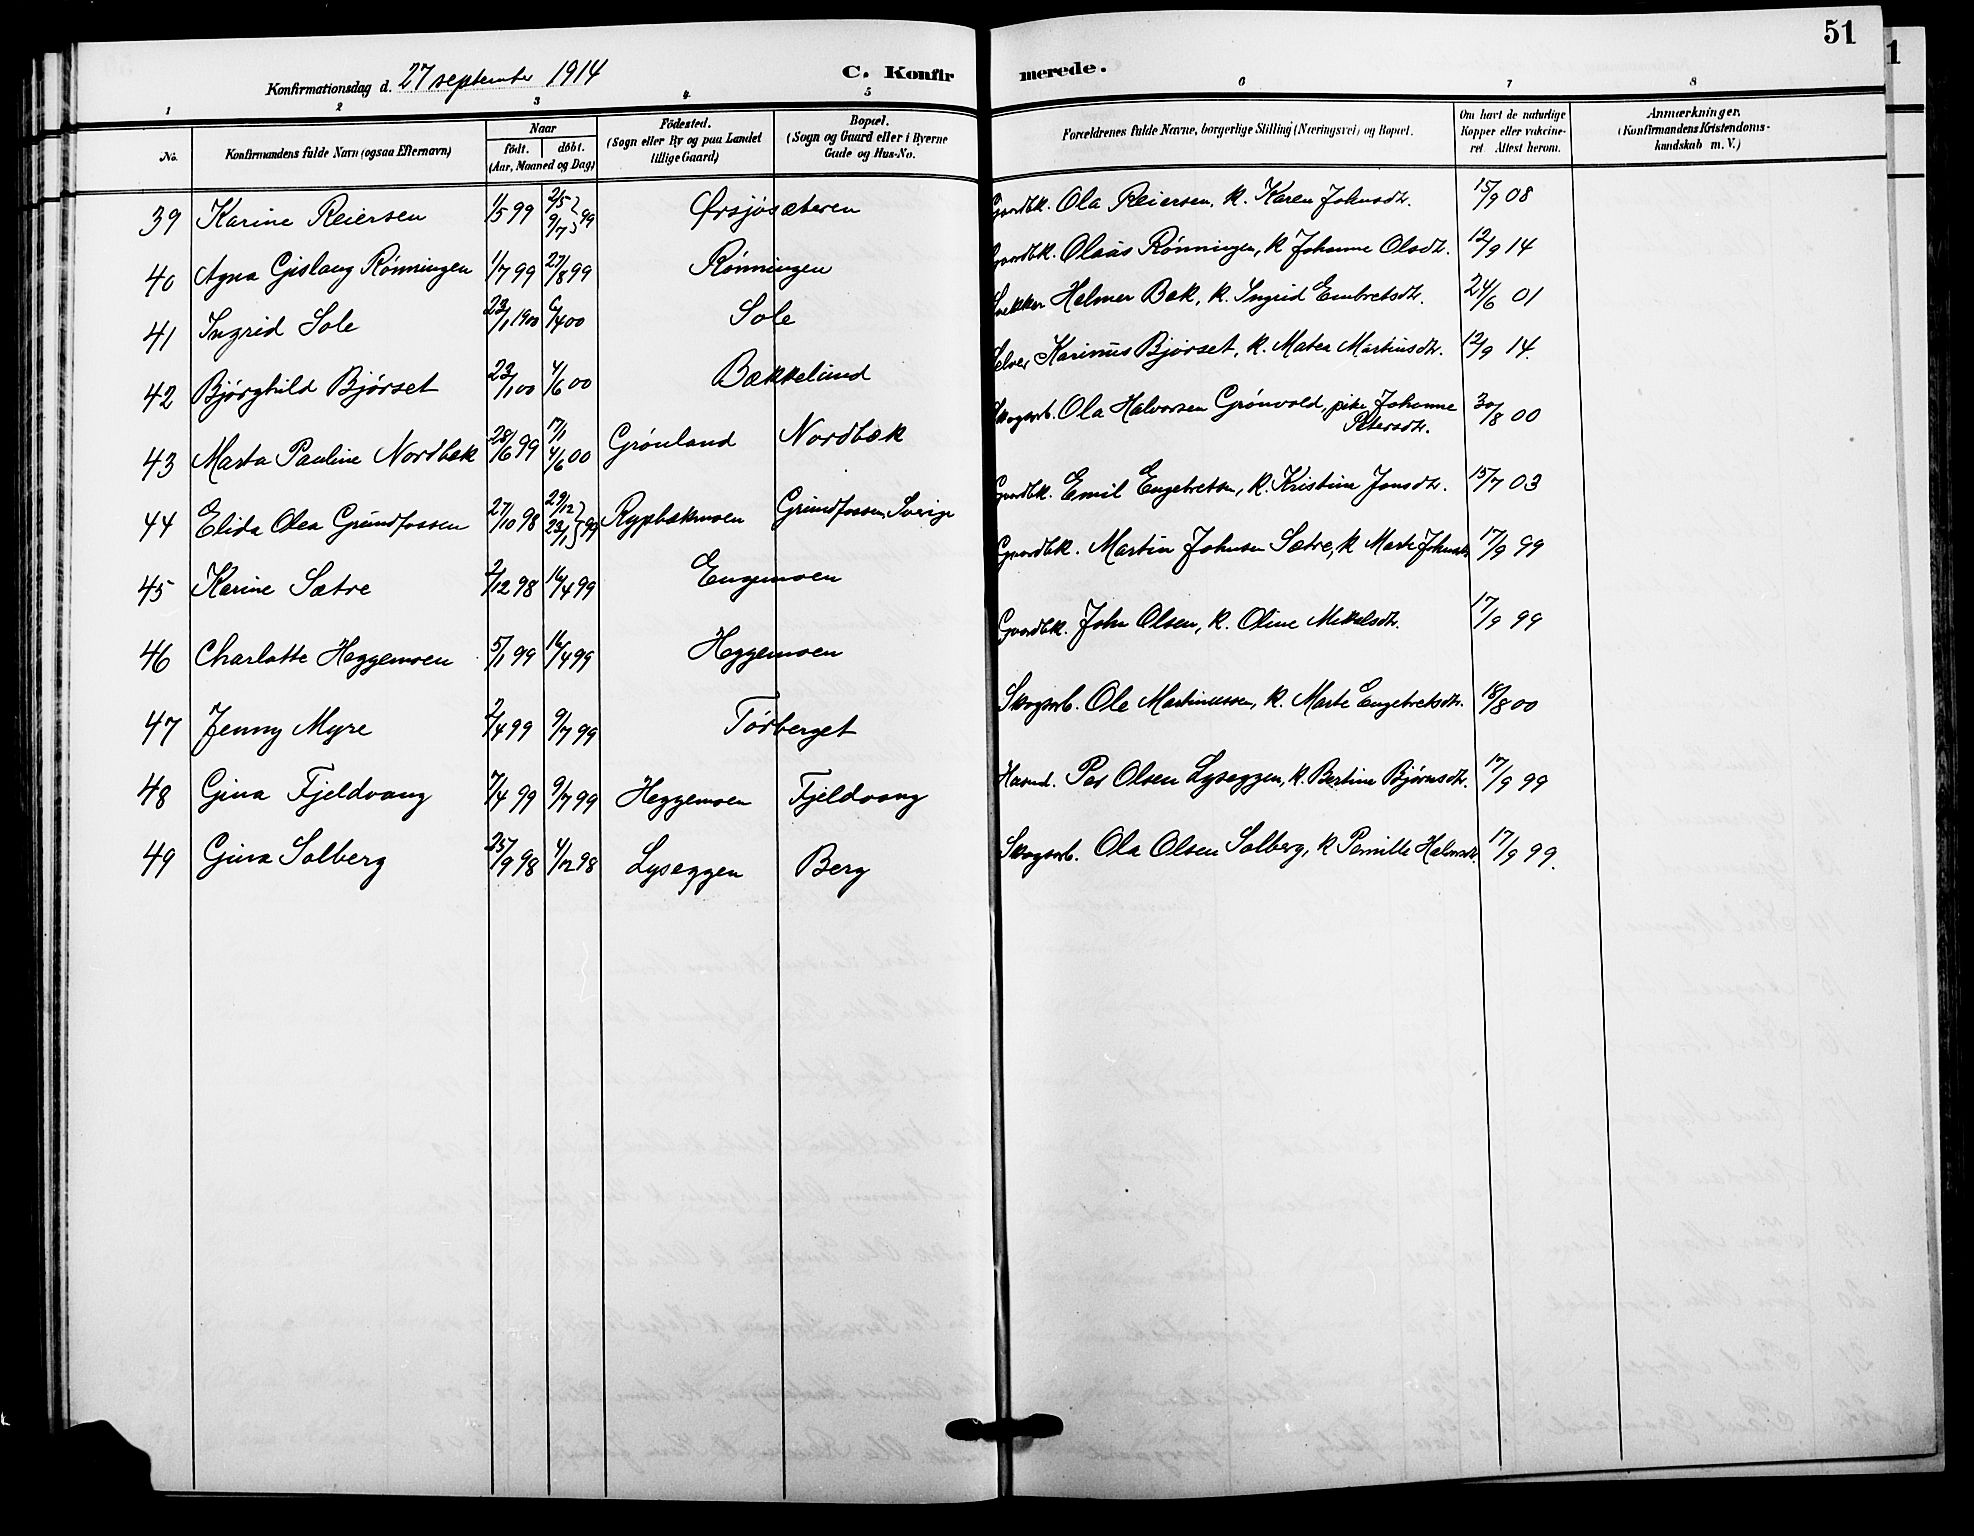 51
1
Konfirmationsdag d. 27 september 1914 C. Konfir merede.
1 2 3 4 5 6 7 8
No. Konfirmandens fulde Navn (ogsaa Efternavn) Naar født. døbt. (Aar, Maaned og Dag) Födested. (Sogn eller By og paa Landet tillige Gaard) Bopæl. (Sogn og Gaard eller i Byerne Gade og Hus-No. Forældrenes fulde Navne, borgerlige Stilling (Næringsvei) og Bopæl. Om havt de naturlige Kopper eller vaccineret. Attest herom. Anmærkninger, (Konfirmandens Kristendomskundskab m. V.)
39 Karine Reiersen 1/5 99 2/5 9/7 } 99 Ørsjøsæteren Gaardbk. Ola Reiersen, k. Karen Johnsdtr. 15/9 08
40 Agna Gislaug Rønningen 1/7 99 27/8 99 Rønningen Gaardbk. Olaus Rønningen, k Johanne Olsdtr. 12/9 14
41 Ingrid Sole 23/1 1900 6/4 00 Sole Halmer Bak, k. Ingrid Embretsdtr. 24/6 01
42 Bjørghild Bjørset 23/1 00 4/6 00 Bækkelund Selver Karinus Bjørset, k. Matea Martinsdtr. 12/9 14.
43 Marta Pauline Nordbæk 28/6 99 17/1 4/6 00 Grønland Nordbæk Skogsarb. Ola Halvorsen Grønvold, pike Johanne Petersdtr. 30/8 00
44 Elida Olea Grundfossen 27/10 98 29/12 23/1 } 99 Rypbækmoen Grundfossen, Sverige Gaardbk. Emil Engebretsen, k. Kristine Jonsdtr. 15/7 03
45 Karine Sætre 2/12 98 16/4 99 Engemoen Gaardbk. Martin Johnsen Sætre, k Marte Johnsdtr. 17/9 99
46 Charlotte Heggemoen 5/1 99 16/4 99 Heggemoen Gaardbk. John Olsen, k. Oline Mikkelsdtr. 17/9 99
47 Jenny Myre 2/4 99 9/7 99 Tørberget Skogsarb. Ole Martinussen, k. Marte Engebretsdtr. 18/8 00
48 Gina Fjeldvang 7/4 99 9/7 99 Heggemoen Fjeldvang Husmd. Per Olsen Lyseggen, k. Bertine Bjørnsdtr. 17/9 99
49 Gina Solberg 25/9 98 4/12 98 Lyseggen Berg Skogsarb. Ola Olsen Solberg, k Pernille Halvorsdtr. 17/9 99.